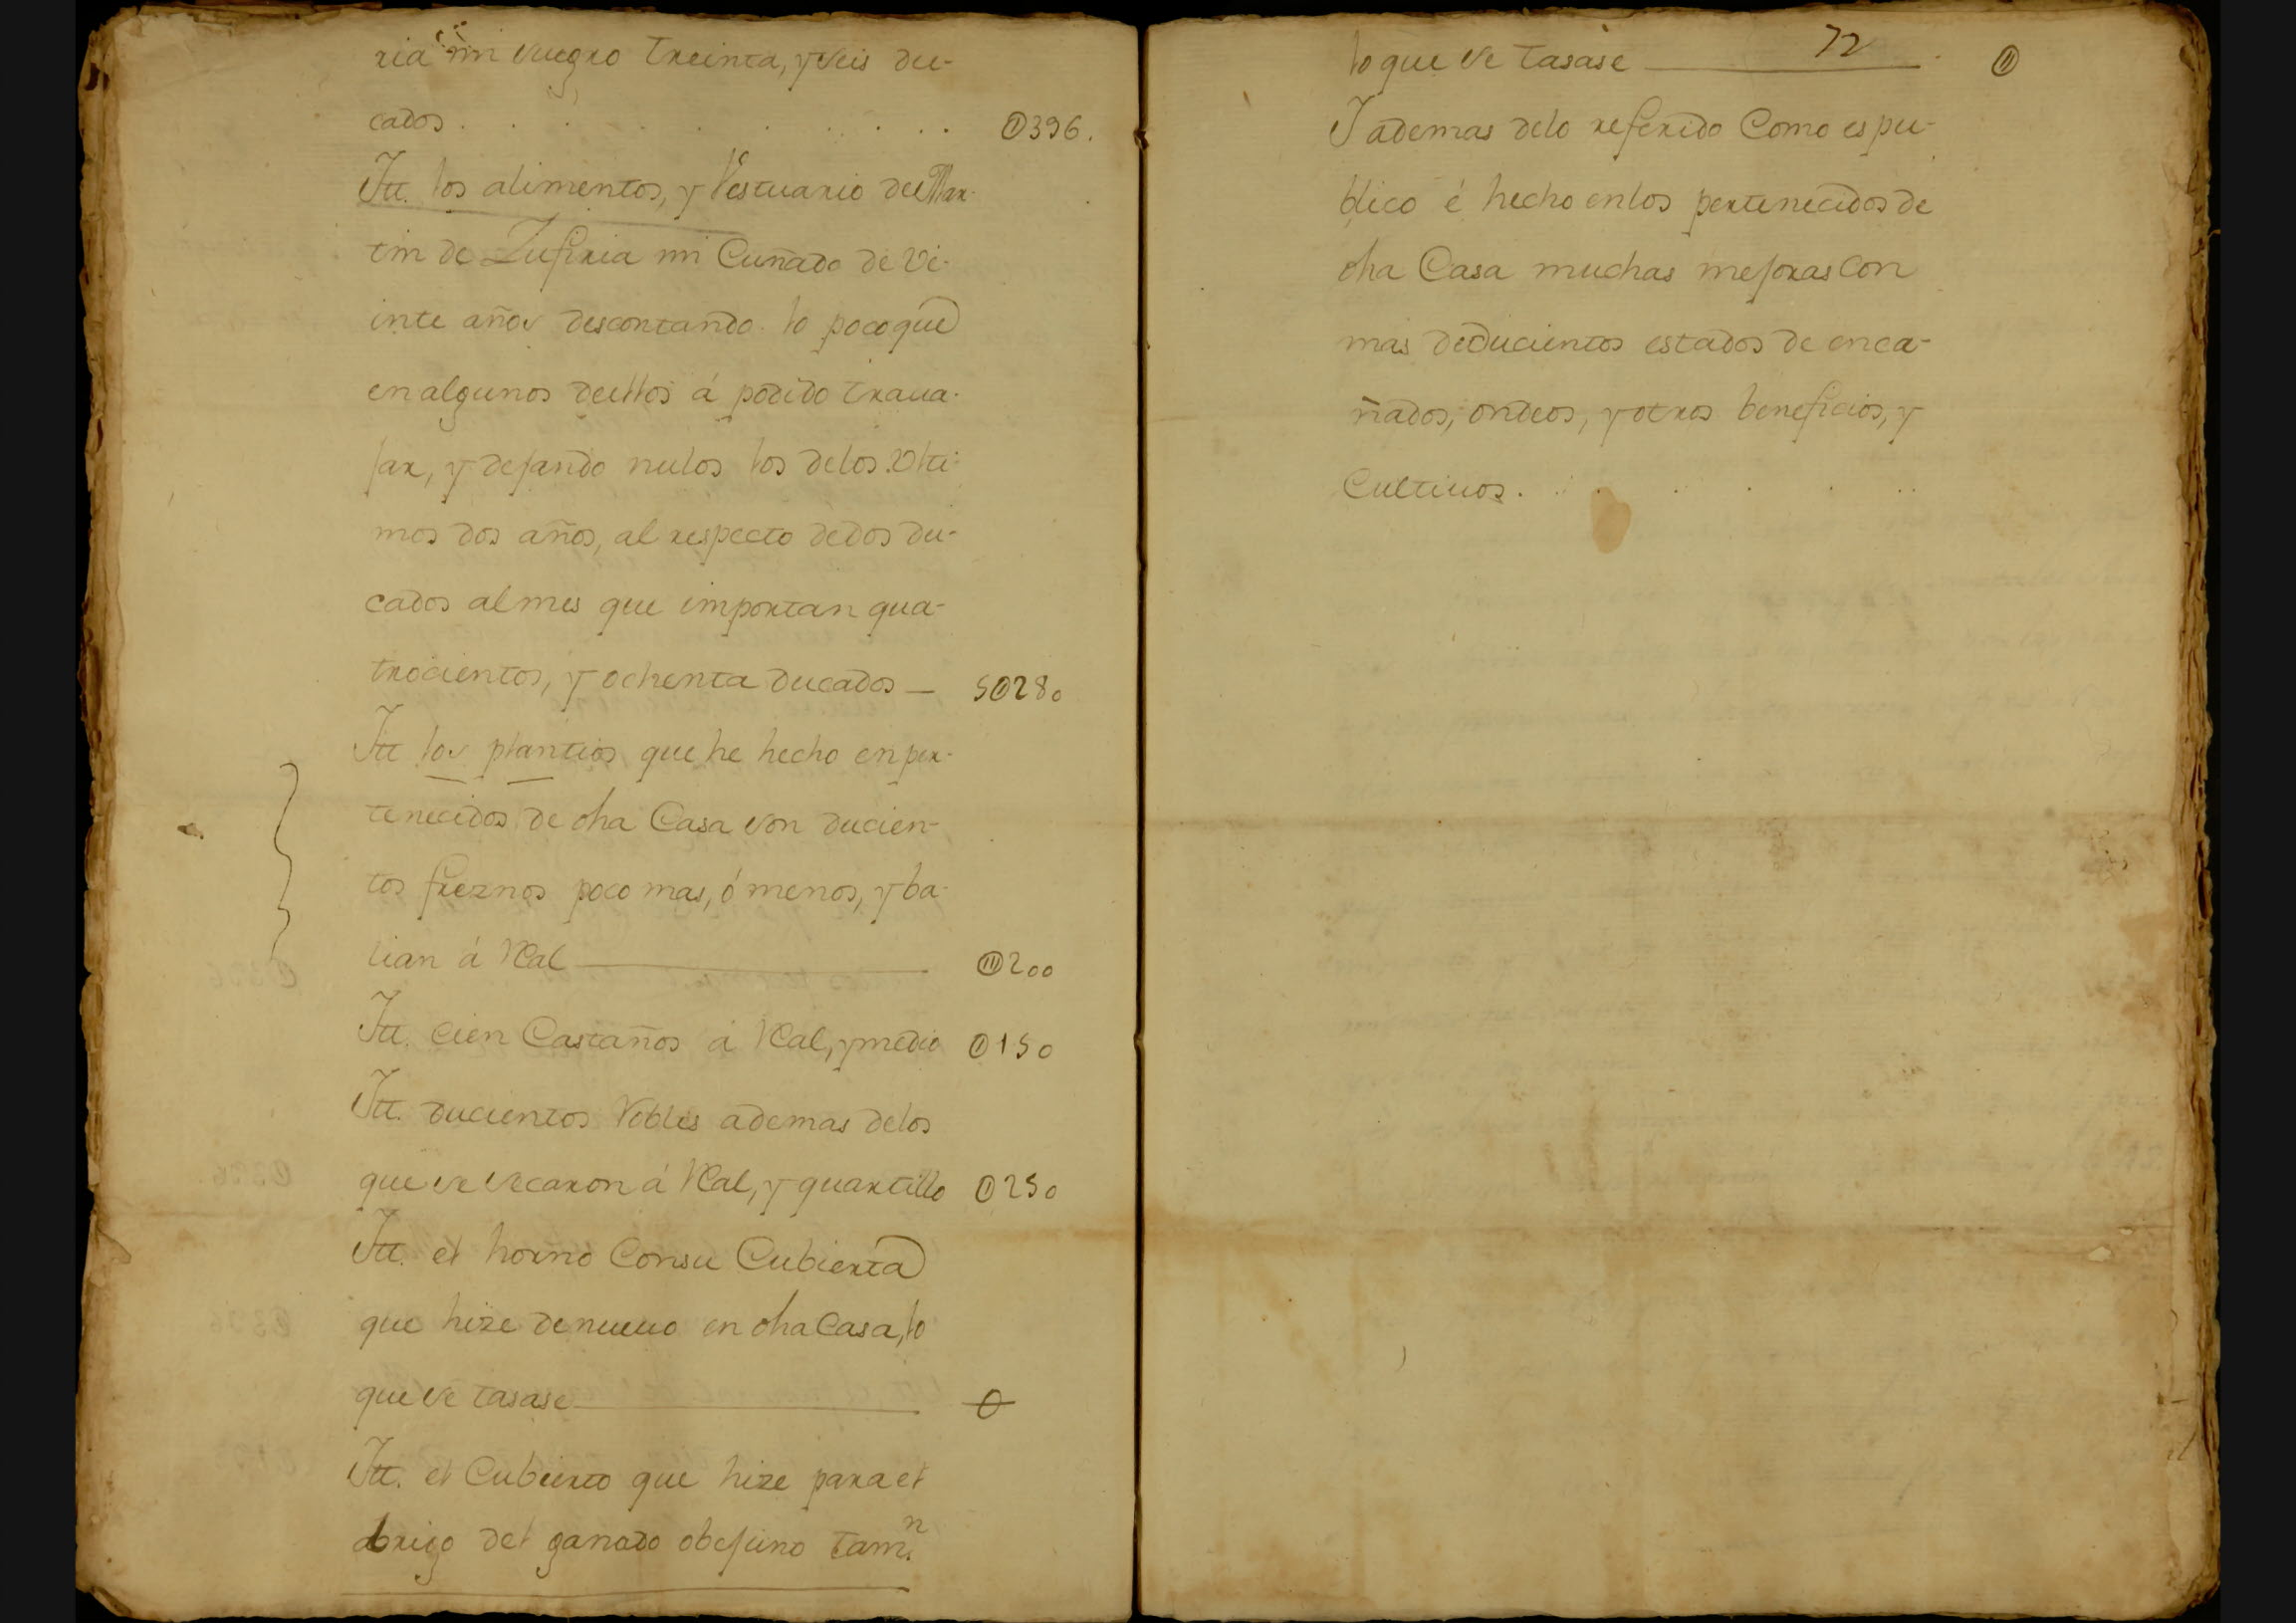 ria mi suegro treinta, y seis du-
cados . . . . . . . . . . 0396.
Itt. los alimentos, y Vestuario de Mar-
tin de Zufiria mi Cuñado de Ve-
inte años descontando lo poco que
en algunos dellos á podido traua-
jar, y dejando nulos los delos Vlti-
mos dos años, al respecto de dos du-
cados al mes que importan qua-
trocientos, y ochenta ducados — 50280
Itt los plantios que he hecho en per-
tenecidos de dha Casa son ducien-
tos freznos poco mas, ó menos, y ba-
lian á Real — 0200
Itt. cien Castaños á Real, y medio 0150
Itt. ducientos Robles ademas delos
que se secaron á Real, y quartillo 0250
Itt. el horno Consu Cubierta
que hize denueuo en dha Casa, lo
que se tasase — 0
Itt. el Cubierto que hize para el
abrigo del ganado obejuno tamn.
72
lo que se tasase — 0
I ademas delo referido Como es pu-
blico é hecho en los pertenecidos de
dha Casa muchas mejoras Con
mas de ducientos estados de enca-
ñados, ondeos, y otros beneficios, y
Cultiuos . . . . . .